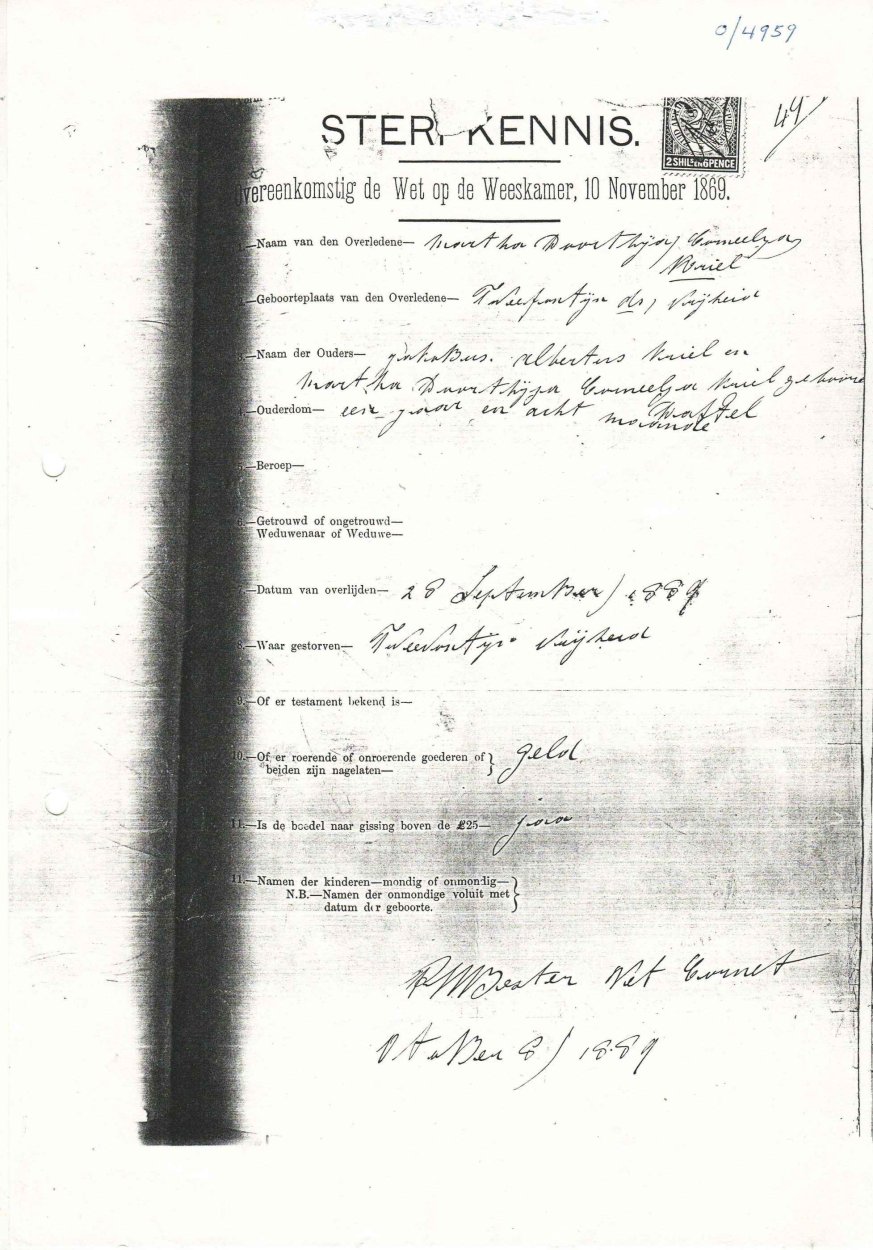 0/4959
49/
STERFKENNIS.
2 SHILLING 6 PENCE
Overeenkomstig de Wet op de Weeskamer, 10 November 1869.
1.—Naam van den Overledene— Martha Doorthyja Corneelya
Kriel
2.—Geboorteplaats van den Overledene— Tweefontyn ds, Vrijheid
3.—Naam der Ouders— jakobus. albertus Kriel en
Martha Doorthyja Corneelya Kriel geboore
4.—Ouderdom— een jaar en acht maande
5.—Beroep—
6.—Getrouwd of ongetrouwd—
Weduwenaar of Weduwe—
7.—Datum van overlijden— 28 September) 1889
8.—Waar gestorven— Tweefontyn Vrijheid
9.—Of er testament bekend is—
10.—Of er roerende of onroerende goederen of
beiden zijn nagelaten— } geld
11.—Is de boedel naar gissing boven de £25— jaa
11.—Namen der kinderen—mondig of onmondig—
N.B.—Namen der onmondige voluit met
datum der geboorte. }
Bester Vet Cornet
October 8) 1889